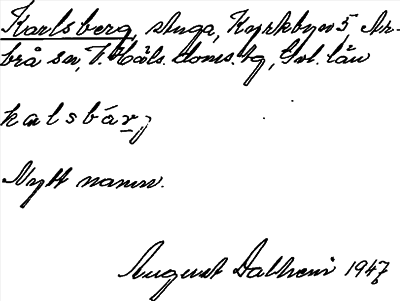 Karlsberg, stuga, Kyrkbyn 5, Ar-
brå sn, V. Häls. doms. tg, Gvl. län
kalsbár̲j
Nytt namn.
August Dalheim 1947